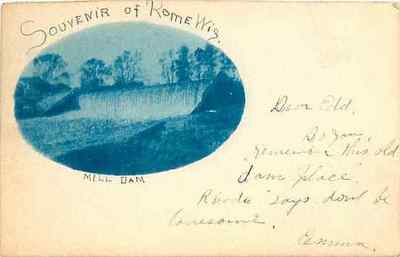 Souvenir of Rome Wis.
MILL DAM
Dear Edd.
Do you
remember this old
dam place.
Rhoda says don't be
lonesome.
Emma.